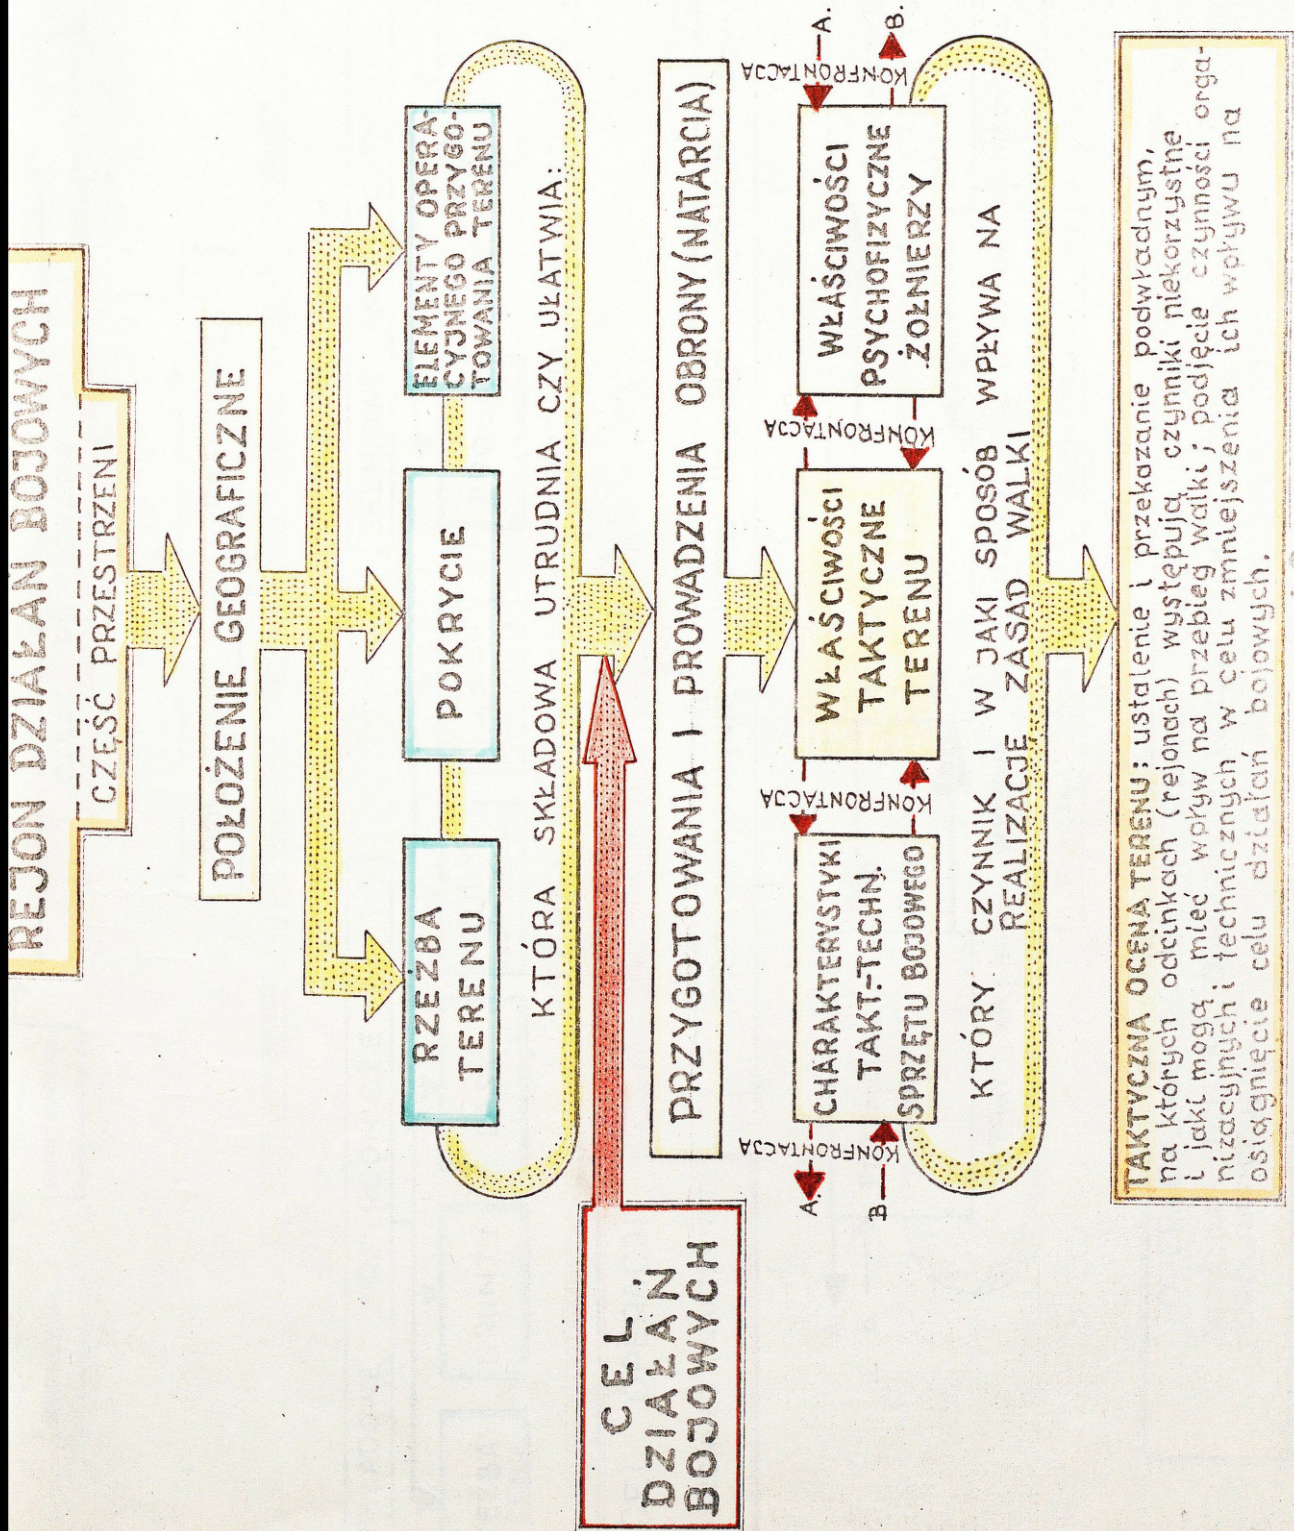 REJON DZIAŁAŃ BOJOWYCH
CZĘŚĆ PRZESTRZENI
POŁOŻENIE GEOGRAFICZNE
RZEŹBA
TERENU
POKRYCIE
ELEMENTY OPERA-
CYJNEGO PRZYGO-
TOWANIA TERENU
KTÓRA SKŁADOWA UTRUDNIA CZY UŁATWIA:
CEL
DZIAŁAŃ
BOJOWYCH
PRZYGOTOWANIA I PROWADZENIA OBRONY (NATARCIA)
A.
KONFRONTACJA
KONFRONTACJA
B
CHARAKTERYSTYKI
TAKT.-TECHN.
SPRZĘTU BOJOWEGO
KONFRONTACJA
KONFRONTACJA
WŁAŚCIWOŚCI
TAKTYCZNE
TERENU
KONFRONTACJA
KONFRONTACJA
WŁAŚCIWOŚCI
PSYCHOFIZYCZNE
ŻOŁNIERZY
KONFRONTACJA
A.
KONFRONTACJA
B.
KTÓRY CZYNNIK I W JAKI SPOSÓB WPŁYWA NA
REALIZACJĘ ZASAD WALKI
TAKTYCZNA OCENA TERENU; ustalenie i przekazanie podwładnym,
na których odcinkach (rejonach) występują czynniki niekorzystne
i jaki mogą mieć wpływ na przebieg walki; podjęcie czynności orga-
nizacyjnych i technicznych w celu zmniejszenia ich wpływu na
osiągnięcie celu działań bojowych.